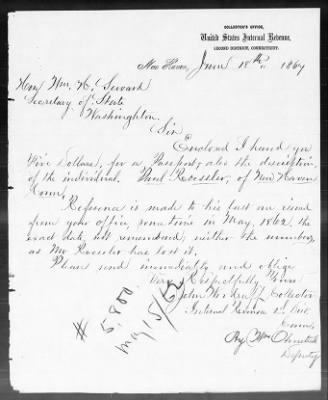 COLLECTOR'S OFFICE,
United States Internal Revenue,
SECOND DISTRICT, CONNECTICUT.
New Haven, June 18th, 1867
Hon. Wm. H. Seward
Secretary of State
Washington.
Sir
Enclosed I hand you
Five Dollars, for a Passport, also the description
of the individual. Paul Roessler, of New Haven
Conn,
Refference is made to his last one issued
from your office, sometime in May, 1862, the
exact date, not remembered; neither the number,
as Mr Roessler has lost it.
Please send immediately and oblige
Very Respectfully Yours
John Woodruff Collector
Internal Revenue 2d Dist
Conn,
By Wm Olmsted
Deputy
# 5,800
May 15/62